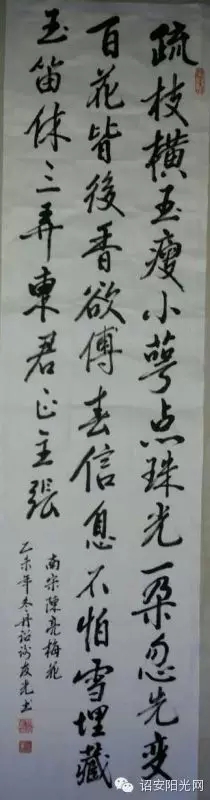 疏枝橫玉瘦小萼点珠光一朶忽先变
百花皆後香欲傅春信息不怕雪埋藏
玉笛休三弄東君正主張
南宋陳亮梅花
乙未年冬月詔
诏安阳光网